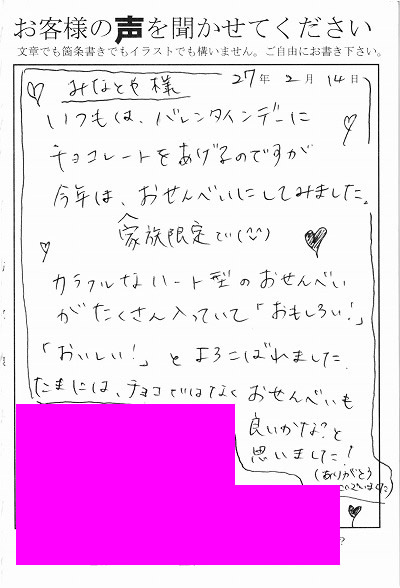 お客様の声を聞かせてください
文章でも箇条書きでもイラストでも構いません。ご自由にお書き下さい。
27年 2月 14日
みなとや様
いつもは、バレンタインデーに
チョコレートをあげるのですが
今年は、おせんべいにしてみました。
家族限定で(^^)
カラフルなハート型のおせんべい
がたくさん入っていて「おもしろい!」
「おいしい!」とよろこばれました。
たまには、チョコではなくおせんべいも
良いかな?と
思いました!
(ありがとう
ございました)